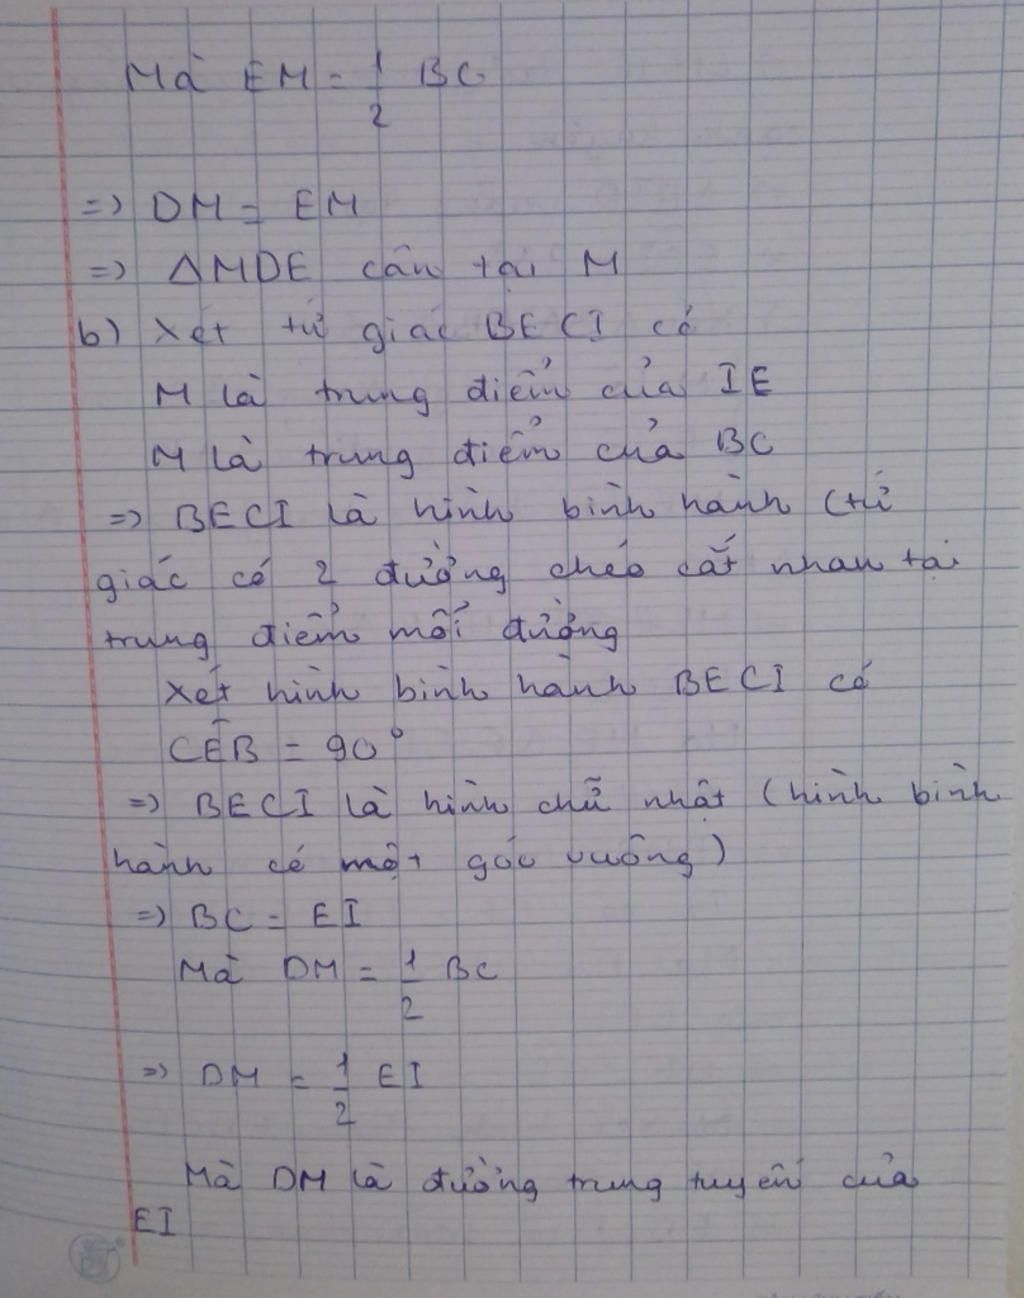 Mà EM = 1/2 BC
=> DM = EM
=> ΔMDE cân tại M
b) Xét tứ giác BECI có
M là trung điểm của IE
M là trung điểm của BC
=> BECI là hình bình hành (tứ
giác có 2 đường chéo cắt nhau tại
trung điểm mỗi đường
Xét hình bình hành BECI có
CÊB = 90°
=> BECI là hình chữ nhật (hình bình
hành có một góc vuông)
=> BC = EI
Mà DM = 1/2 BC
=> DM = 1/2 EI
Mà DM là đường trung tuyến của
EI